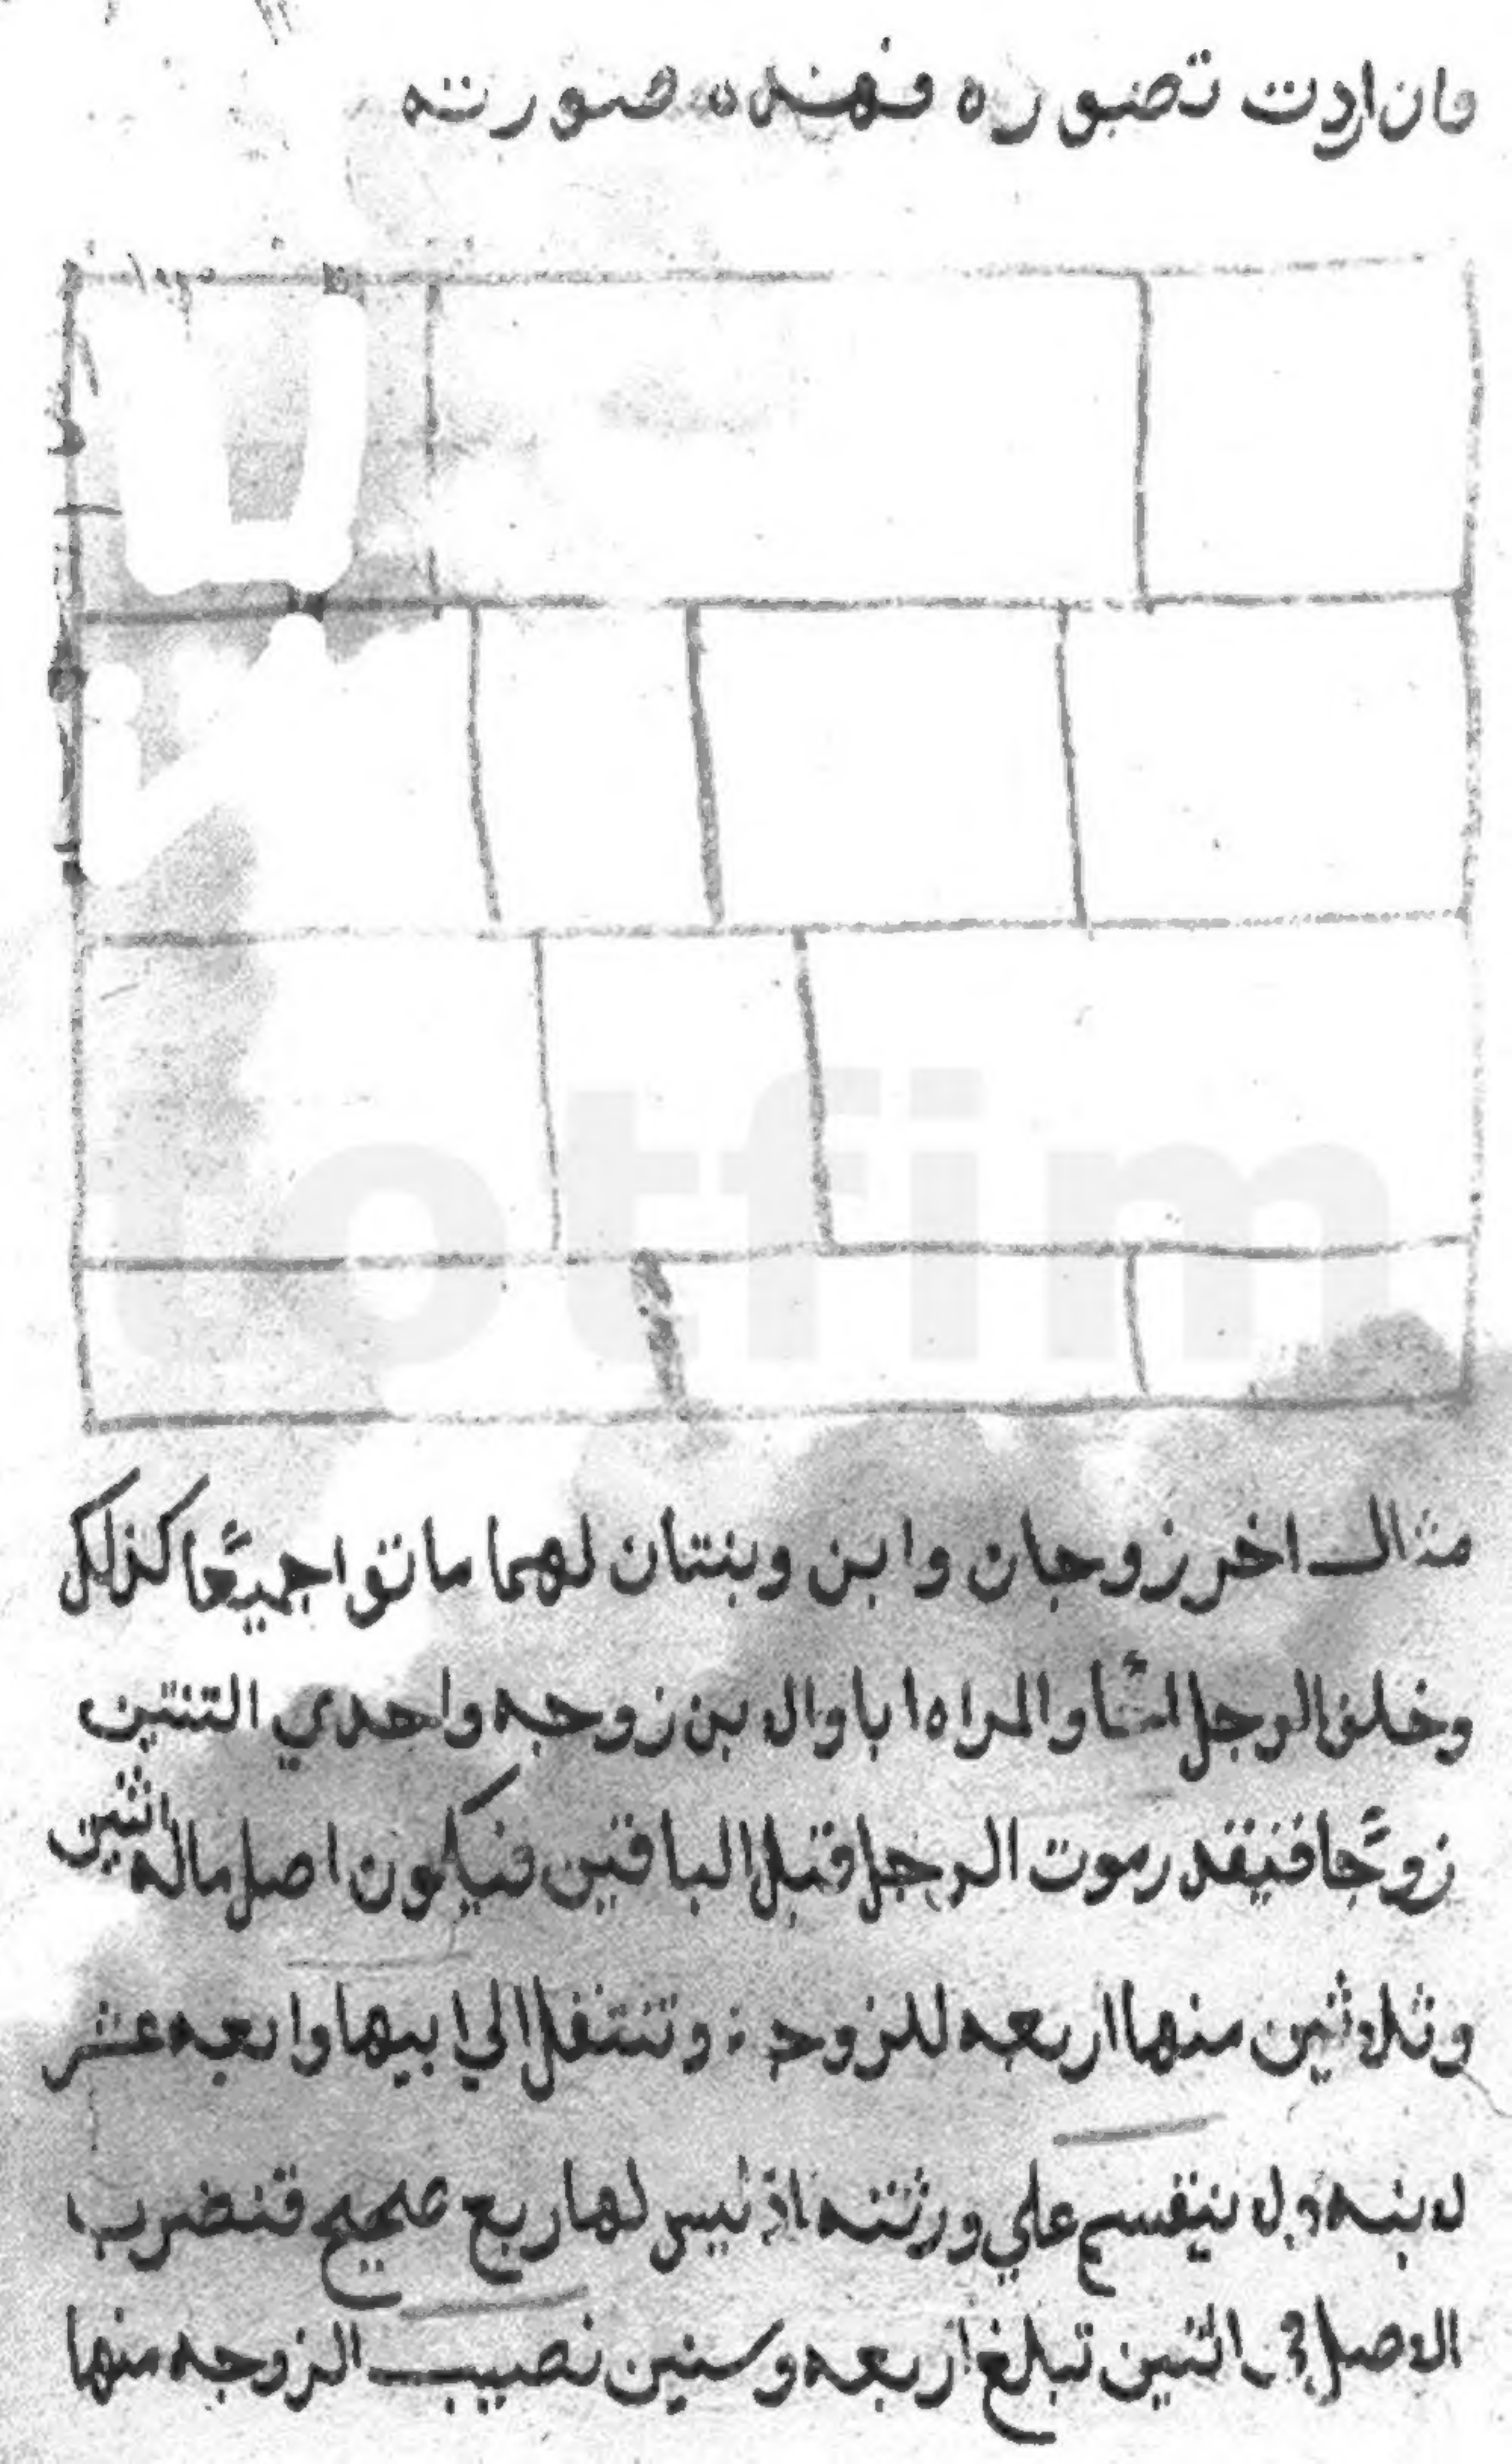 وان اردت تصوره فهذه صورته
مثال اخر زوجان وابن وبنتان لهما ماتوا جميعًا كذلك
وخلف الرجل والمراه ابا والابن زوجه واحدي البنتين
زوجًا فيقدر موت الرجل قبل الباقين فيكون اصل ماله اثنين
وثلاثين منها اربعه للزوجه وتنتقل الي ابيها واربعه عشر
لابنه ولا ينقسم علي ورثته اذ ليس لها ربع صحيح فنضرب
الاصل في اثنين تبلغ اربعه وستين نصيب الزوجه منها
totfim